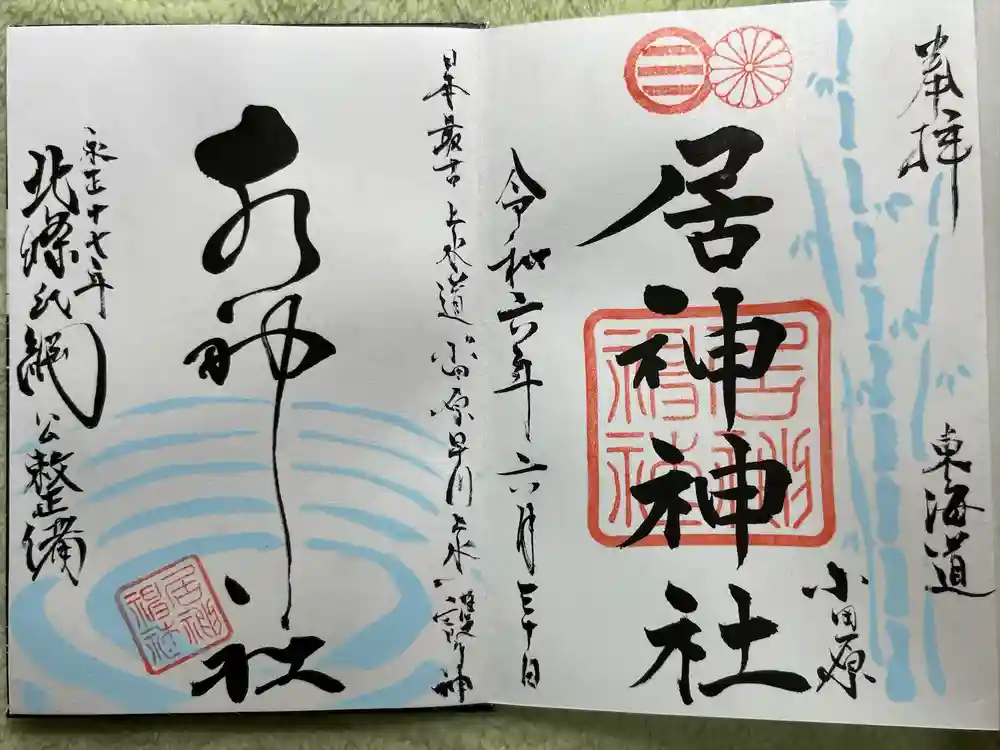 奉拝
東海道
小田原
居神神社
居神神社
令和六年 六月三十日
日本最古 上水道 小田原早川上水 護り神
水神社
居神神社
永正十七年
北條氏綱公整備